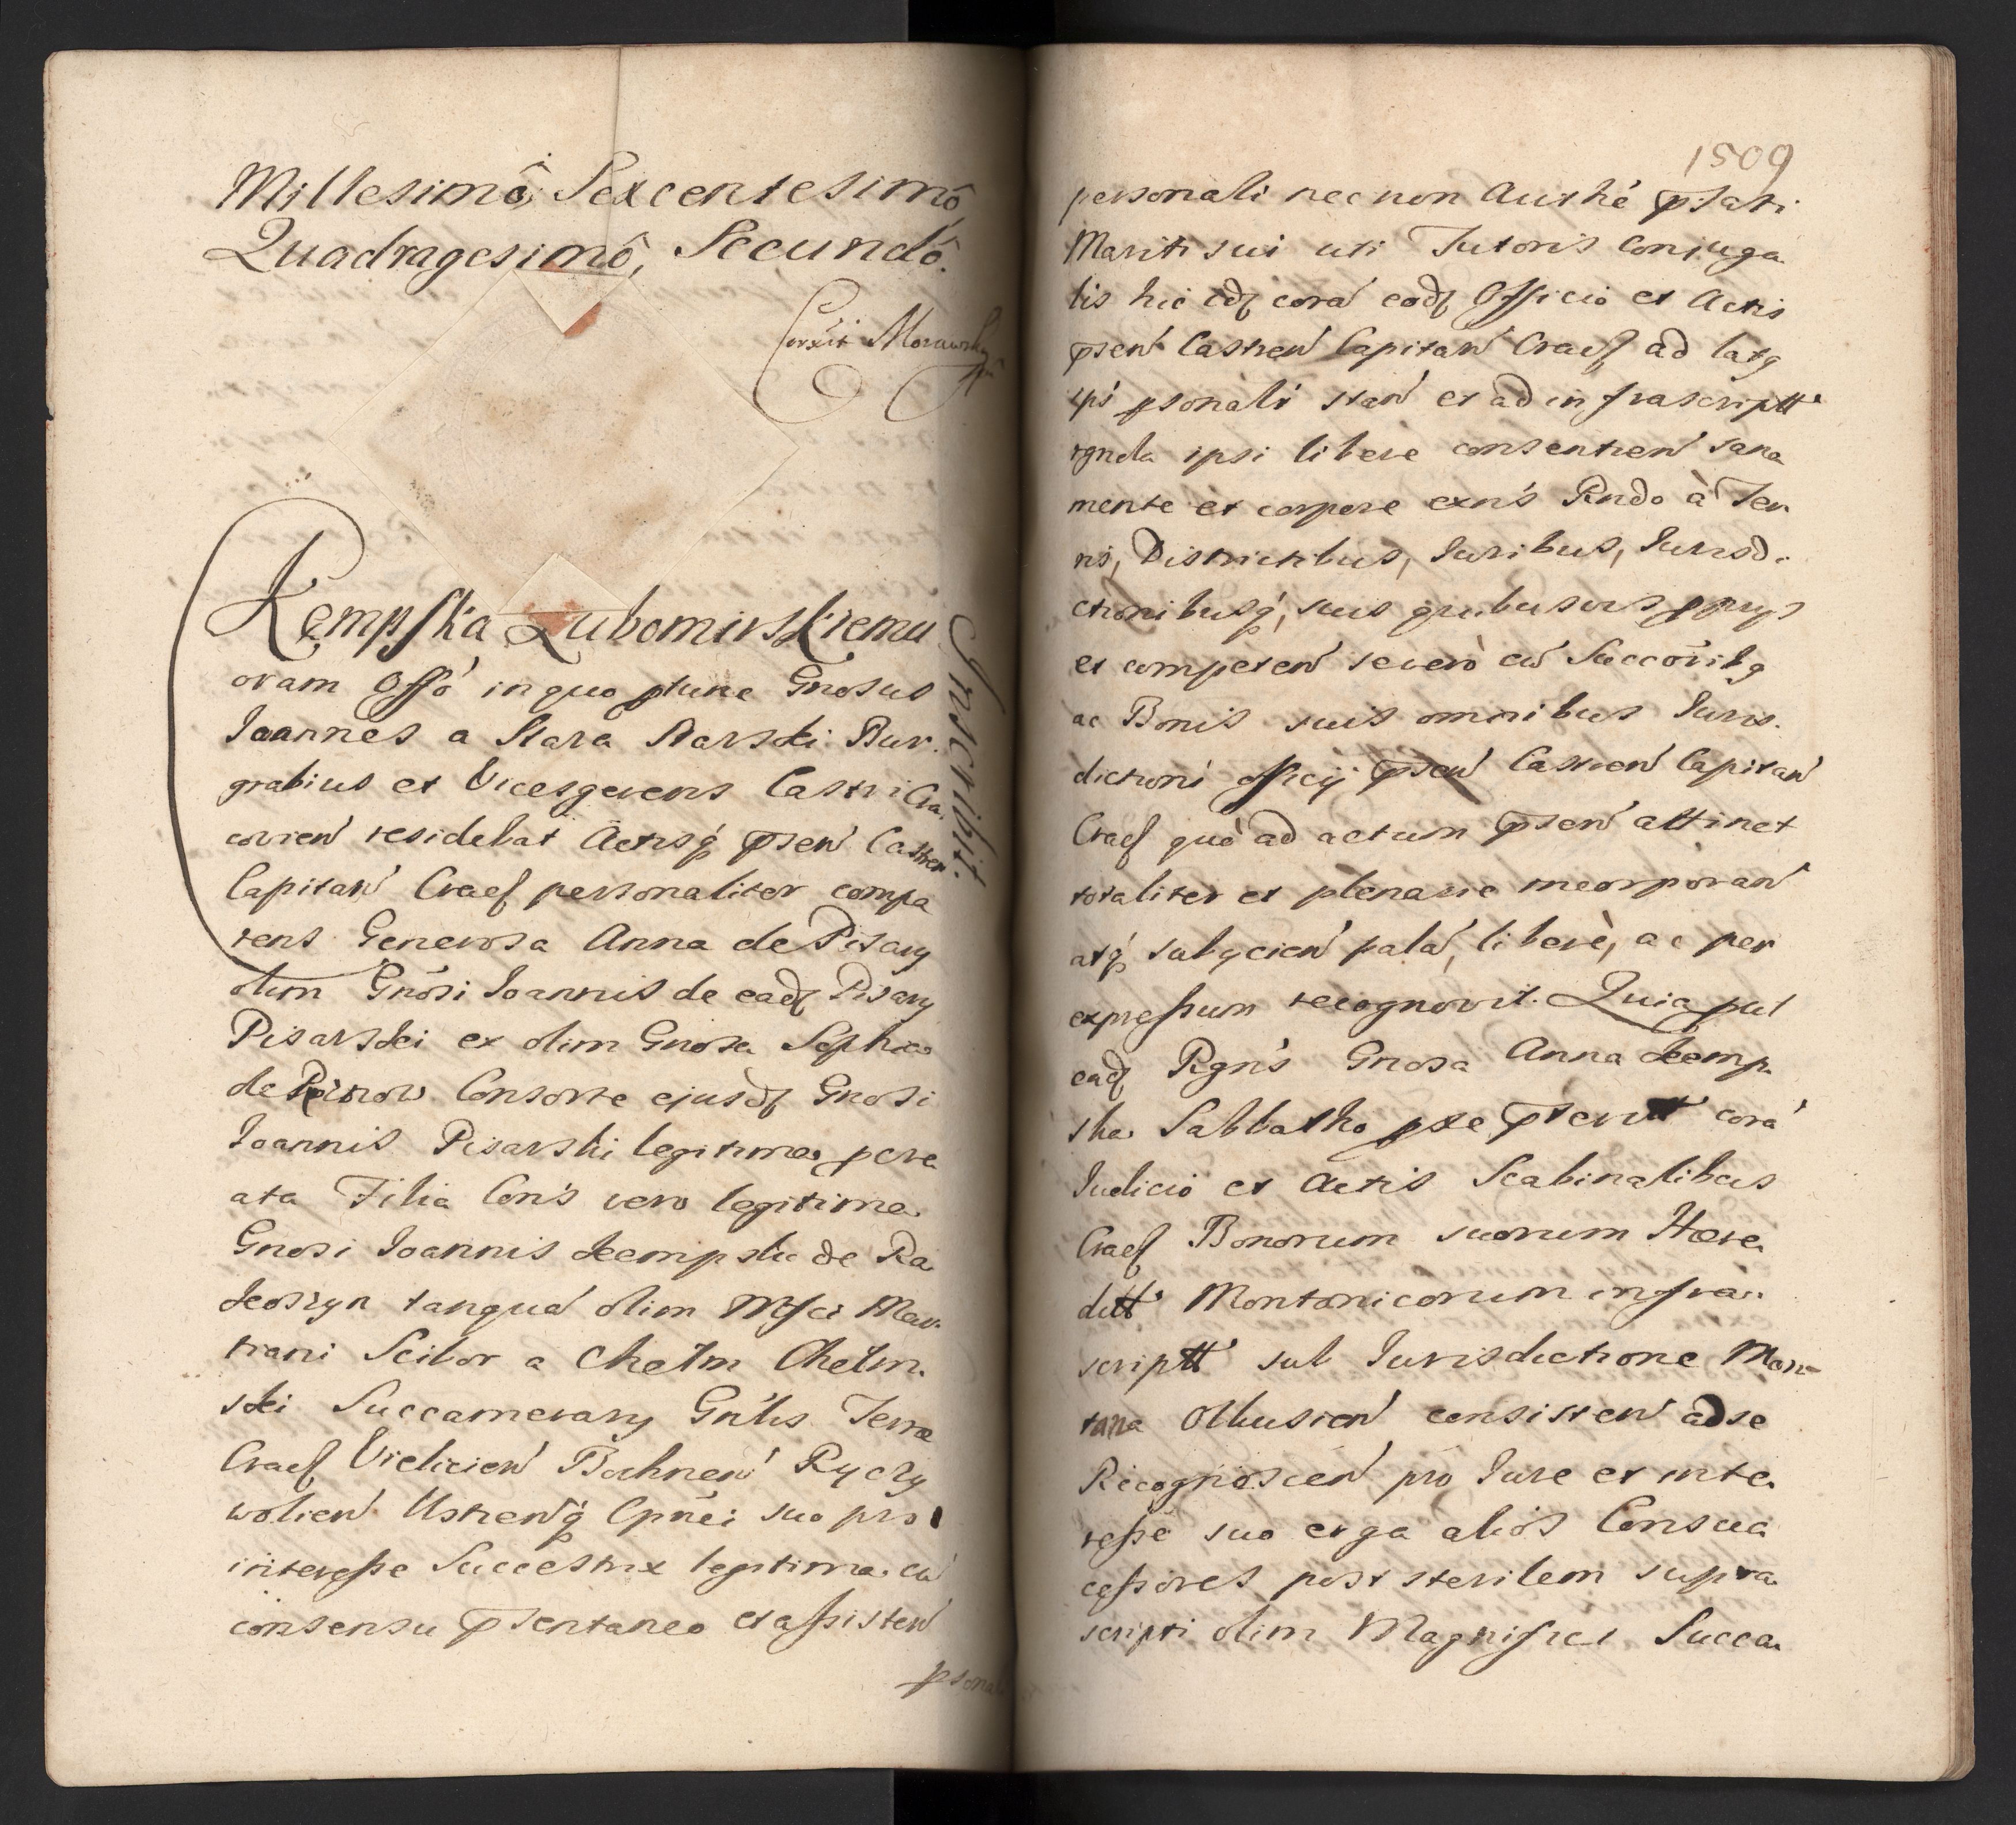 Millesimô, Sexcentesimô
Quadragesimô, Secundô.
Corxit Morawsky
Kempska Lubomirskiemu
Inscribit.
oram Offó in quo ptunc Gnosus
Joannes a Stara Starski Bur
grabius et Vicesgerens Castri Cra,
covień residebat Actisq́ pseń Castren
Capitań Cracȷ personaliter compa
rens Generosa Anna de Pisary
olim Gnosi Joannis de eadȷ Pisary
Pisarski ex olim Gnosa Sophia
de Consorte ejusdȷ Gnosi
Joannis Pisarski legitima pcre
ata Filia Cons vero legitima
Gnosi Joannis Kempski de Ra
koszyn tanquá olim Mfci Mar
trani Scibor a Chełm Chełm
ski Succamerary Gnlis Terræ
Cracȷ Vielicień Bochneń Ryczy
wolień Ustreńq́ Cpnei suo pro
interesse Successtrix legitima cú
consensu psentaneo et assisteń
psonali
1509
personali nec non Authe pstati
Mariti sui uti Tutoris Conjuga
lis hic edȷ corá eodȷ Officio et Actis
pseń Castreń Capitań Cracȷ ad latq
ipś psonalí stań et ad infrascriptt
rgnda ipsi libere consentień sana
mente et corpore exns Rndo à Ter
ris, Districtibus, Juribus, Jurisdi
ctionibusq́, suis qnibusvis pprys
et competeń severò cú Succoribq
ac Bonis suis omnibus Juris.
dictioni officij pseń Castreń Capitań
Cracȷ quò ad actum pseń attinet
totaliter et plenarie incorporań
atq́ subycień palá, liberè, ac per
expressum recognovit. Quia
eadȷ Rgns Gnosa Anna Kemp
ska Sabbatho pxe corá
Judicio et Actis Scabinalibus
Cracȷ Bonorum suorum Hære
ditt Montanicorum infra
scriptt sub Jurisdictione Mon
tana Olkusień consisteń ad se
Recognosceń pro Jure et inte
resse suo erga alios Consuc
cessores post sterilem supra
scripti olim Magnifici Succa